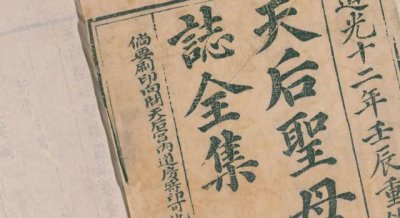 道光十二年壬辰重
天后聖母
誌全集
倘要刷印向天后宮內道房印可